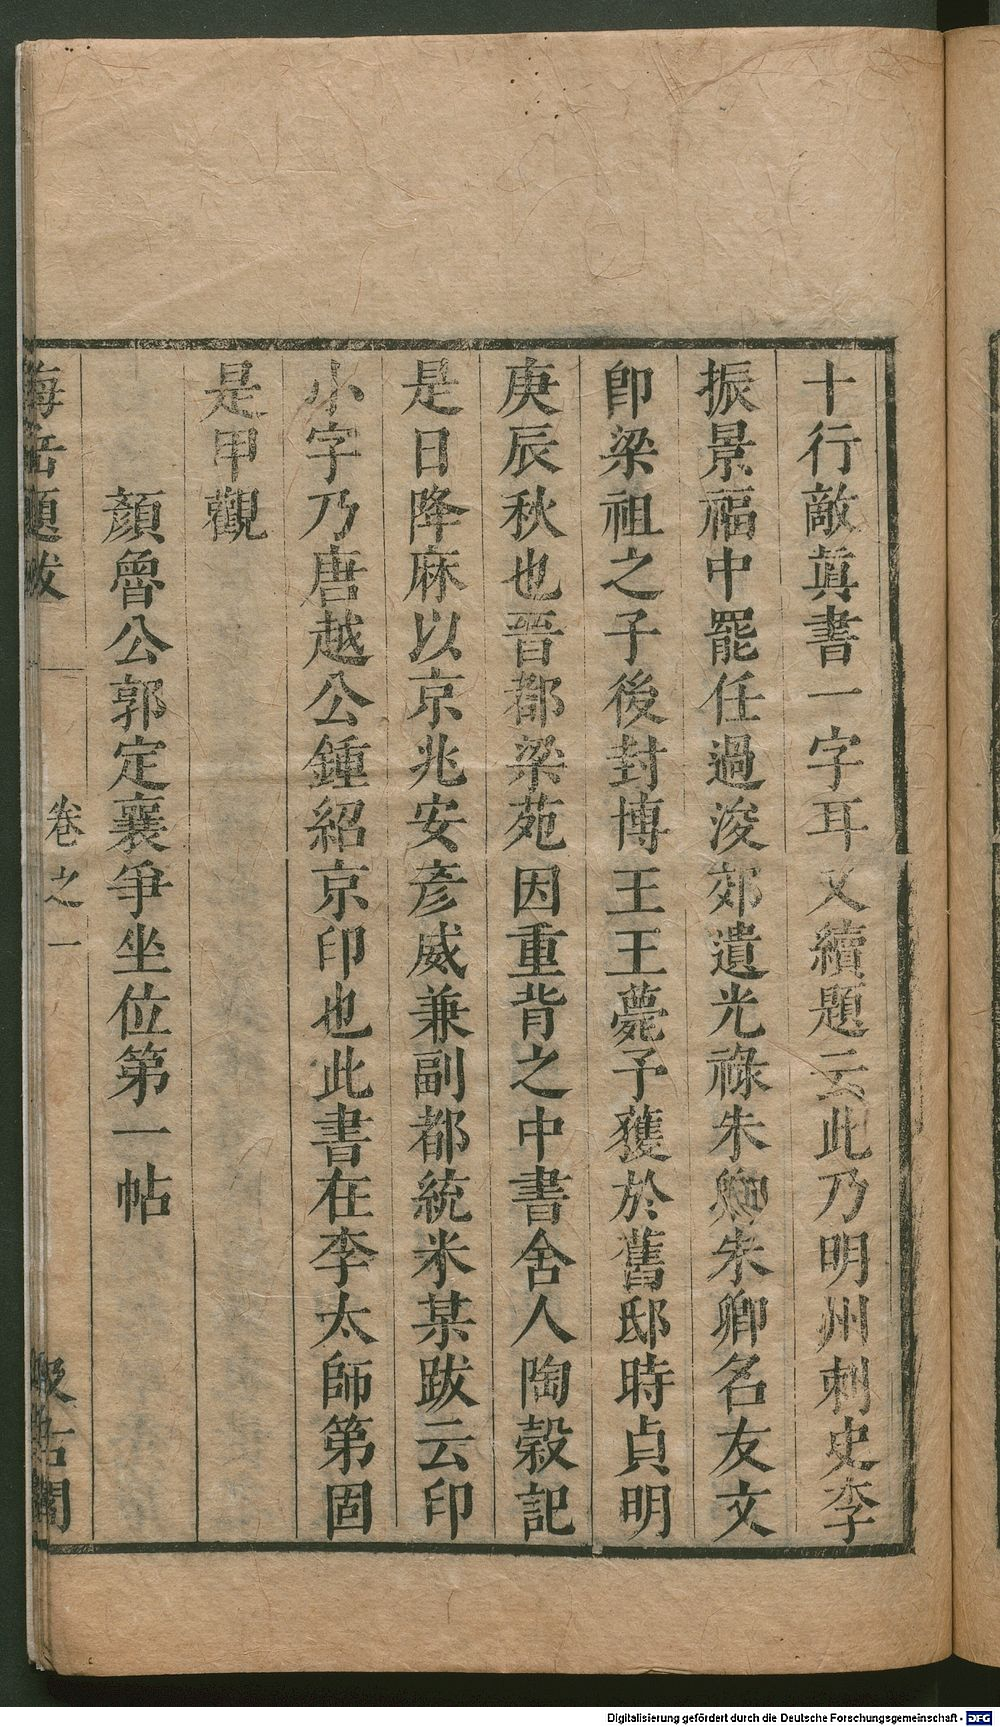 十行敵眞書一字耳又續題云此乃明州刺史李
振景福中罷任過浚郊遺光祿朱卿朱卿名友文
卽梁祖之子後封博王王薨予獲於舊邸時貞明
庚辰秋也晉都梁苑因重背之中書舍人陶穀記
是日降麻以京兆安彦威兼副都統米某跋云印
小字乃唐越公鍾紹京印也此書在李太師第固
是甲觀
顏魯公郭定襄爭坐位第一帖
海岳題跋 卷之一 汲古閣
Digitalisierung gefördert durch die Deutsche Forschungsgemeinschaft - DFG